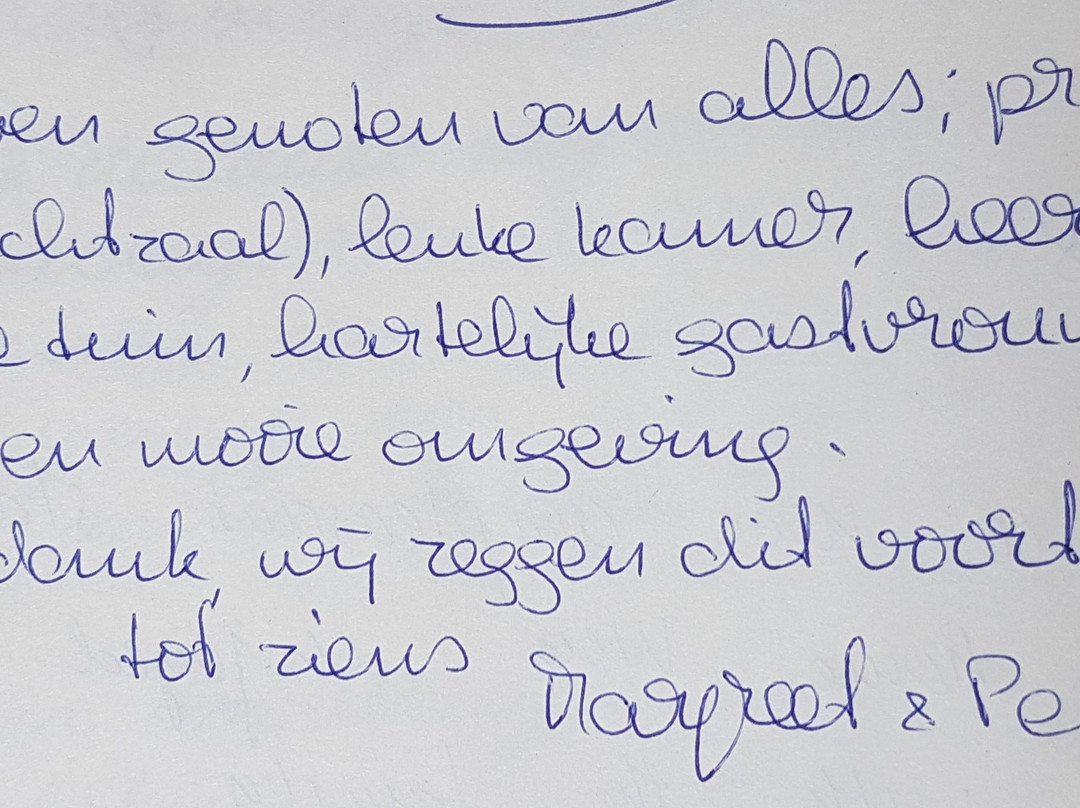 en genoten van alles; pr
chtzaal), leuke kamer, heer
tuin, hartelijke gastvrouw
en mooie omgeving.
dank, wij zeggen dit voort
tot ziens Margreet & Pe